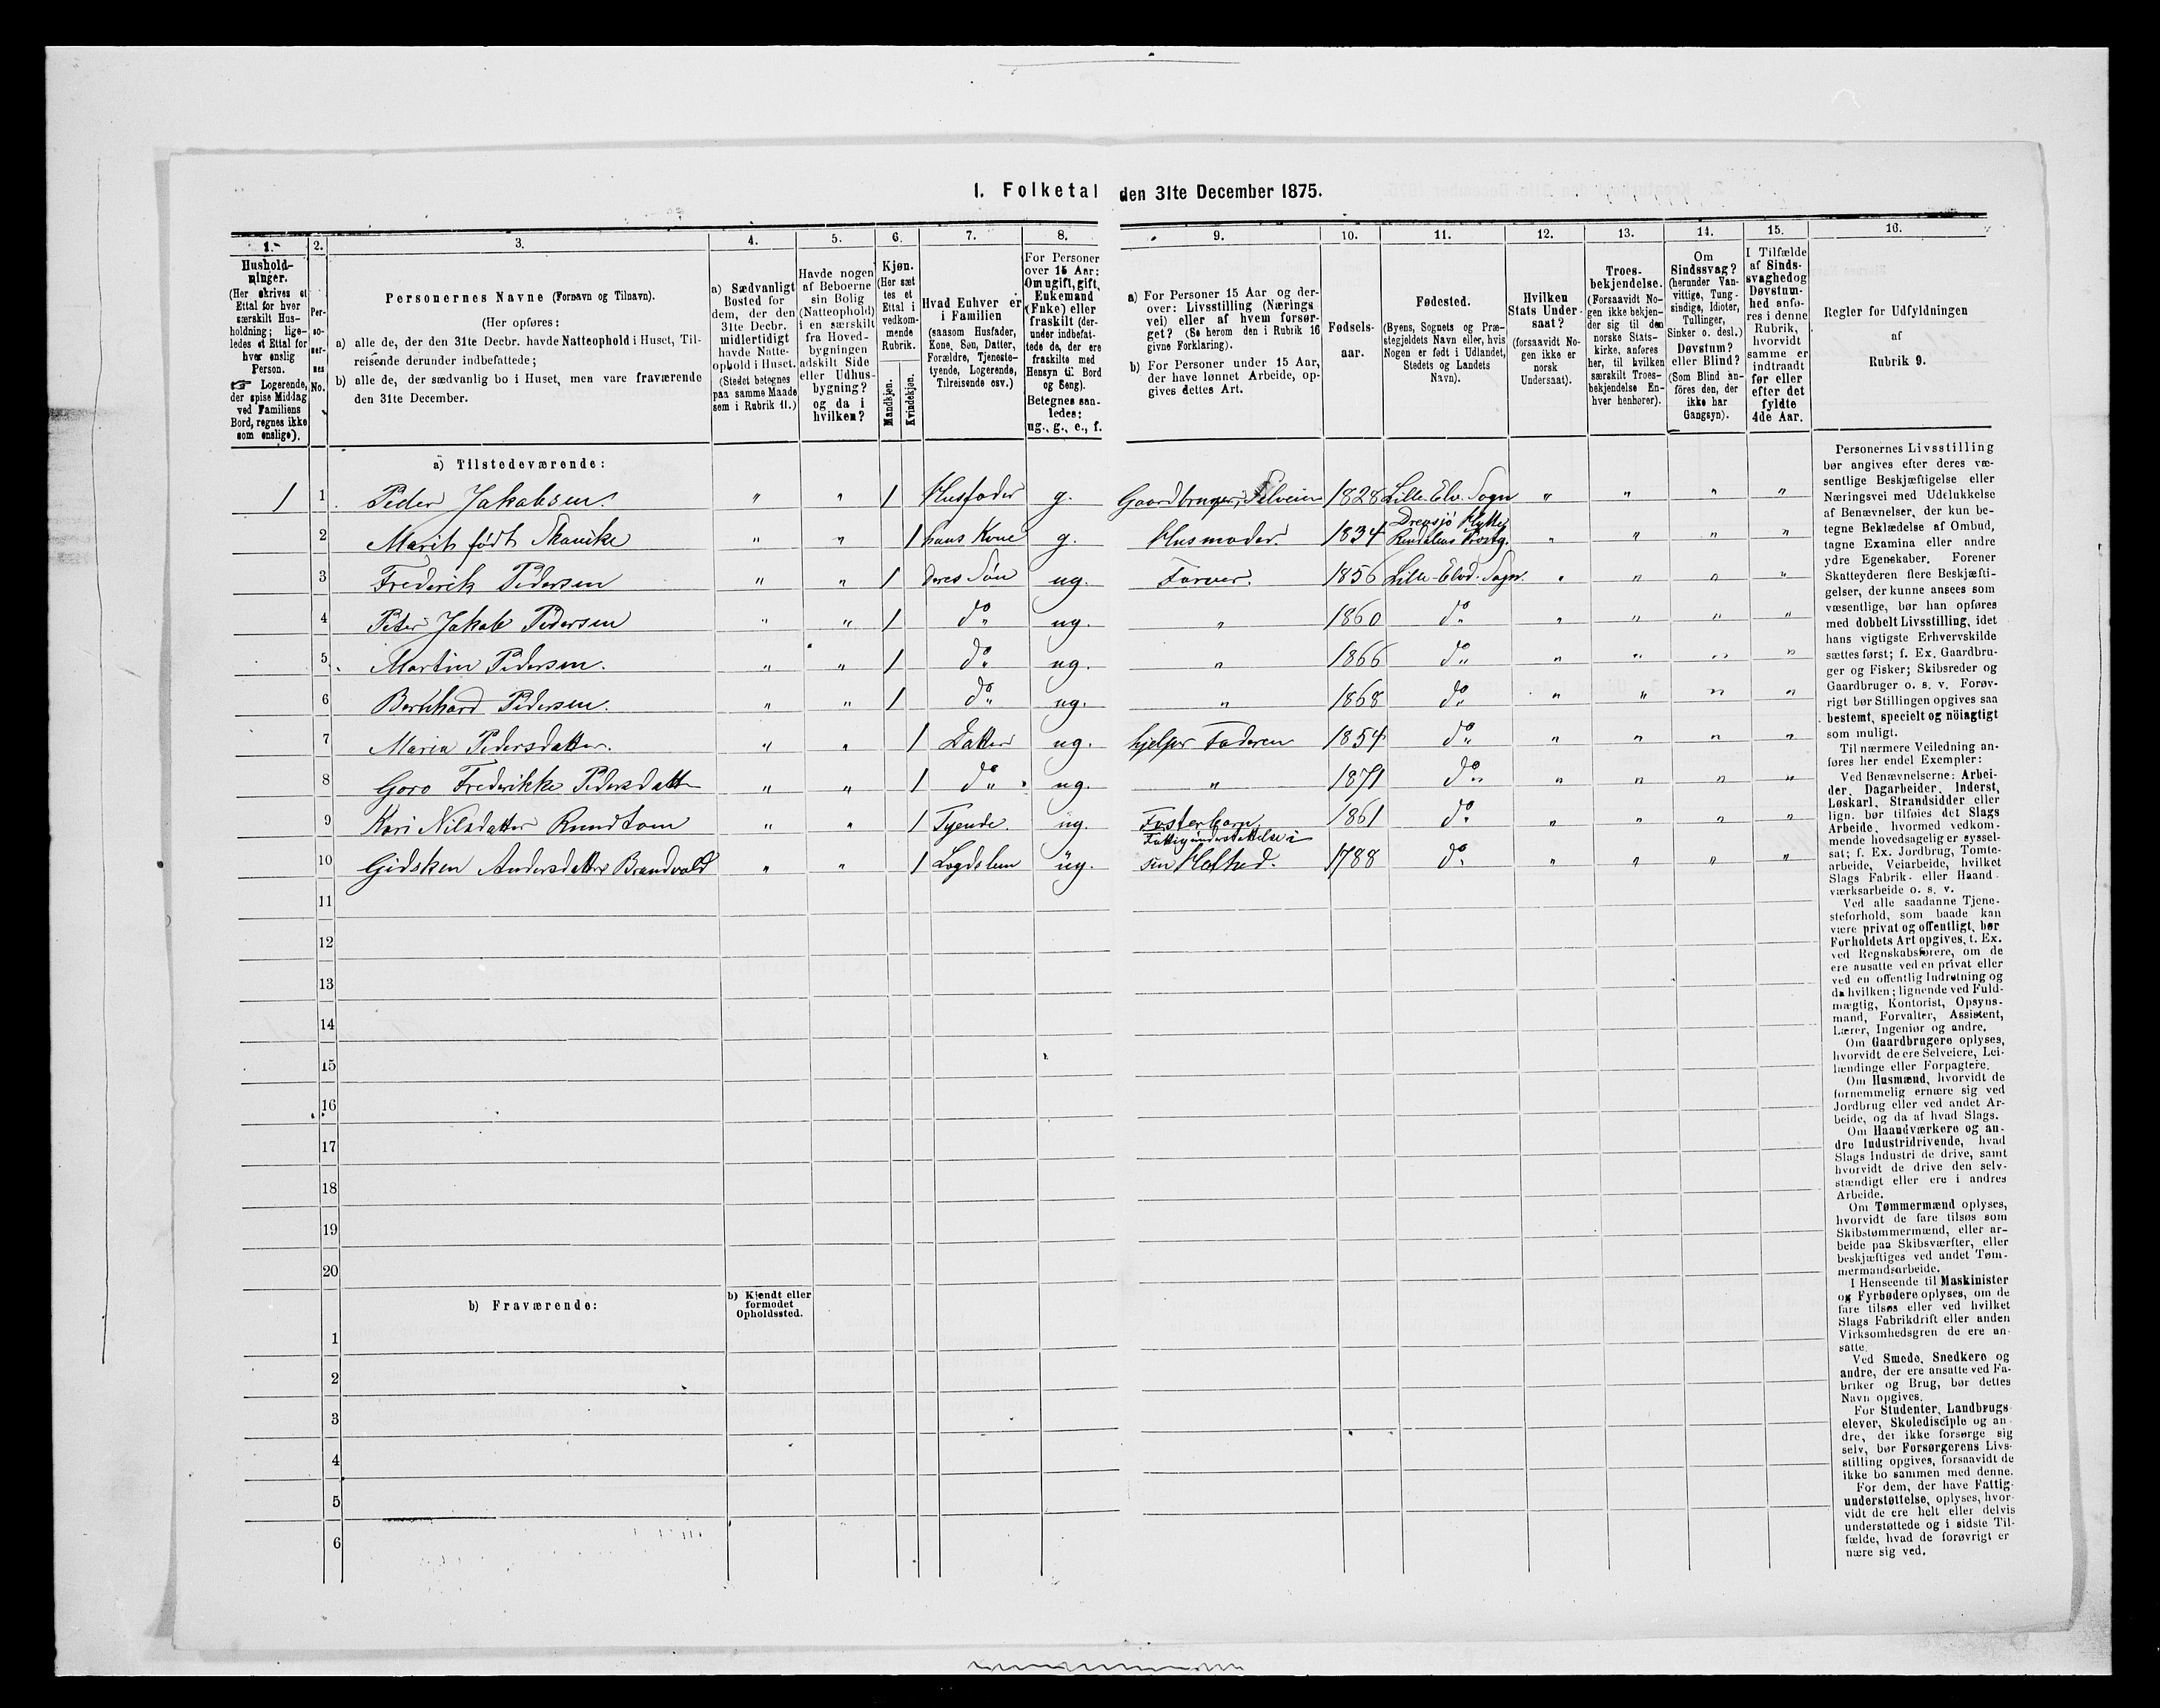 1. Folketal den 31te December 1875.
1. 2. 3. 4. 5. 6. 7. 8. 9. 10. 11. 12. 13. 14. 15. 16.
Hushold-
ninger.
(Her skrives et
Ettal for hver
særskilt Hus-
holdning; lige-
ledes et Ettal for
hver enslig
Person.
☞ Logerende,
der spise Middag
ved Familiens
Bord, regnes ikke
som enslige).
Per-
so-
ner-
nes
No.
Personernes Navne (Fornavn og Tilnavn).
(Her opføres:
a) alle de, der den 31te Decbr. havde Natteophold i Huset, Til-
reisende derunder indbefattede;
b) alle de, der sædvanlig bo i Huset, men vare fraværende
den 31te December.
a) Sædvanligt
Bosted for
dem, der den
31te Decbr.
midlertidigt
havde Natte-
ophold i Huset.
(Stedet betegnes
paa samme Maade
som i Rubrik 11.)
Havde nogen
af Beboerne
sin Bolig
(Natteophold)
i en særskilt
fra Hoved-
bygningen
adskilt Side
eller Udhus-
bygning?
og da i
hvilken?
Kjøn.
(Her sæt
tes et
Ettal i
vedkom-
mende
Rubrik.
Mandkjøn.
Kvindekjøn.
Hvad Enhver er
i Familien
(saasom Husfader,
Kone, Søn, Datter,
Forældre, Tjeneste-
tyende, Logerende,
Tilreisende osv.)
For Personer
over 15 Aar:
Om ugift, gift,
Enkemand
(Enke) eller
fraskilt (der-
under indbefat-
tede de, der ere
fraskilte med
Hensyn til Bord
og Seng).
Betegnes saa-
ledes:
ug., g., e., f.
a) For Personer 15 Aar og der-
over: Livsstilling (Nærings
vei) eller af hvem forsør-
get? (Se herom den i Rubrik 16
givne Forklaring).
b) For Personer under 15 Aar,
der have lønnet Arbeide, op-
gives dettes Art.
Fødsels-
aar.
Fødested.
(Byens, Sognets og Præ-
stegjeldets Navn eller, hvis
Nogen er født i Udlandet,
Stedets og Landets
Navn).
Hvilken
Stats Under-
saat?
(forsaavidt No-
gen ikke er
norsk
Undersaat).
Troes-
bekjendelse.
(Forsaavidt No-
gen ikke bekjen-
der sig til den
norske Stats-
kirke, anføres
her, til hvilken
særskilt Troes-
bekjendelse En-
hver henhører).
Om
Sindssvag?
(herunder Van-
vittige, Tung-
sindige, Idioter,
Tullinger,
Sinker o. desl.)
Døvstum?
eller Blind?
(Som Blind an-
føres den, der
ikke har
Gangsyn).
I Tilfælde
af Sinds-
svaghed og
Døvstum-
hed anfø-
res i denne
Rubrik,
hvorvidt
samme er
indtraadt
før eller
efter det
fyldte
4de Aar.
Regler for Udfyldningen
af
Rubrik 9.
a) Tilstedeværende:
1 1 Peder Jakobsen. " " 1 Husfader g. Gaardbruger, Selveier 1828 Lille-Elv. Sogn " " " "
2 Marit født " " 1 hans Kone g. Husmoder. 1834 Hytte, Rendalens Prstg. " " " "
3 Frederik Pedersen " " 1 deres Søn ug. Farver. 1856 Lille-Elvd. Sogn " " " "
4 Peter Jakob Pedersen " " 1 do ug. " 1860 do " " " "
5 Martin Pedersen. " " 1 do ug. " 1866 do " " " "
6 Bernhard Pedersen. " " 1 do ug. " 1868 do " " " "
7 Maria Pedersdatter. " " 1 Datter ug. hjelper Faderen 1854 do " " " "
8 Goro Frederikke Pedersdatter " " 1 do ug. " 1871 do " " " "
9 Kari Nilsdatter Rundtom " " 1 Tyende. ug. Fosterbarn. 1861 do " " " "
10 Gidsken Andersdatter Brandvold " " 1 Lægdslem ug. Fattigunderstøttelse i sin Helhed. 1788 do " " " "
11
12
13
14
15
16
17
18
19
20
b) Fraværende:
b) Kjendt eller
formodet
Opholdssted.
1
2
3
4
5
6
Personernes Livsstilling
bør angives efter deres væ-
sentlige Beskjæftigelse eller
Næringsvei med Udelukkelse
af Benævnelser, der kun be-
tegne Beklædelse af Ombud,
tagne Examina eller andre
ydre Egenskaber. Forener
Skatteyderen flere Beskjæfti-
gelser, der kunne ansees som
væsentlige, bør han opføres
med dobbelt Livsstilling, idet
hans vigtigste Erhvervskilde
sættes først; f. Ex. Gaardbru-
ger og Fisker; Skibsreder og
Gaardbruger o. s. v. Forøv-
rigt bør Stillingen opgives saa
bestemt, specielt og nöiagtigt
som muligt.
Til nærmere Veiledning an-
føres her endel Exempler:
Ved Benævnelserne: Arbei-
der, Dagarbeider, Inderst,
Løskarl, Strandsidder eller
lign. bør tilføies det Slags
Arbeide, hvormed vedkom-
mende hovedsagelig er syssel-
sat; f. Ex. Jordbrug, Tomte-
arbeide, Veiarbeide, hvilket
Slags Fabrik- eller Haand-
værksarbeide o. s. v.
Ved alle saadanne Tjene-
steforhold, som baade kan
være privat og offentligt, bør
Forholdets Art opgives, t. Ex.
ved Regnskabsførere, om de
ere ansatte ved en privat eller
ved en offentlig Indretning og
da hvilken; lignende ved Fuld-
mægtig, Kontorist, Opsyns-
mand, Forvalter, Assistent,
Lærer, Ingeniør og andre.
Om Gaardbrugere oplyses,
hvorvidt de ere Selveiere, Lei-
lændinge eller Forpagtere.
Om Husmænd, hvorvidt de
fornemmelig ernære sig ved
Jordbrug eller ved andet Ar-
beide, og da af hvad Slags.
Om Haandværkere og an-
dre Industridrivende, hvad
Slags Industri de drive, samt
hvorvidt de drive den selv-
stændigt eller ere i andres
Arbeide.
Om Tømmermænd oplyses,
hvorvidt de fare tilsøs som
Skibstømmermænd, eller ar-
beide paa Skibsværfter, eller
beskjæftiges ved andet Tøm-
mermandsarbeide.
I Henseende til Maskinister
og Fyrbødere oplyses, om de
fare tilsøs eller ved hvilket
Slags Fabrikdrift eller anden
Virksomhedsgren de ere an-
satte.
Ved Smede, Snedkere og
andre, der ere ansatte ved Fa-
briker og Brug, bør dettes
Navn opgives.
For Studenter, Landbrugs-
elever, Skoledisciple og an-
dre, der ikke forsørge sig
selv, bør Forsørgerens Livs-
stilling opgives, forsaavidt de
ikke bo sammen med denne.
For dem, der have Fattig-
understøttelse, oplyses, hvor-
vidt de ere helt eller delvis
understøttede og i sidste Til-
fælde, hvad de forøvrigt er
nære sig ved.